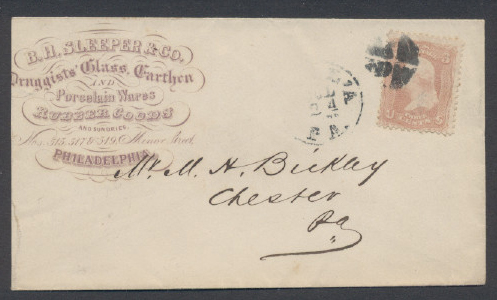 R. H. SLEEPER & CO.
Druggists' Glass, Earthen
AND
Porcelain Wares
RUBBER GOODS
AND SUNDRIES,
Nos. 315, 317 & 319,
Street,
PHILADELPHIA
3 3
Mr. M. H. Bickley
Chester
Pa